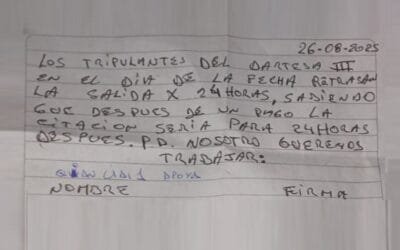 26-08-2025
LOS TRIPULANTES DEL DARTESA III
EN EL DIA DE LA FECHA RETRASAN
LA SALIDA X 24HORAS, SADIENDO
QUE DESPUES DE UN PAGO LA
CITACION SERIA PARA 24HORAS
DESPUES. P.D. NOSOTRO QUEREMOS
TRADAJAR:
NOMBRE FIRMA